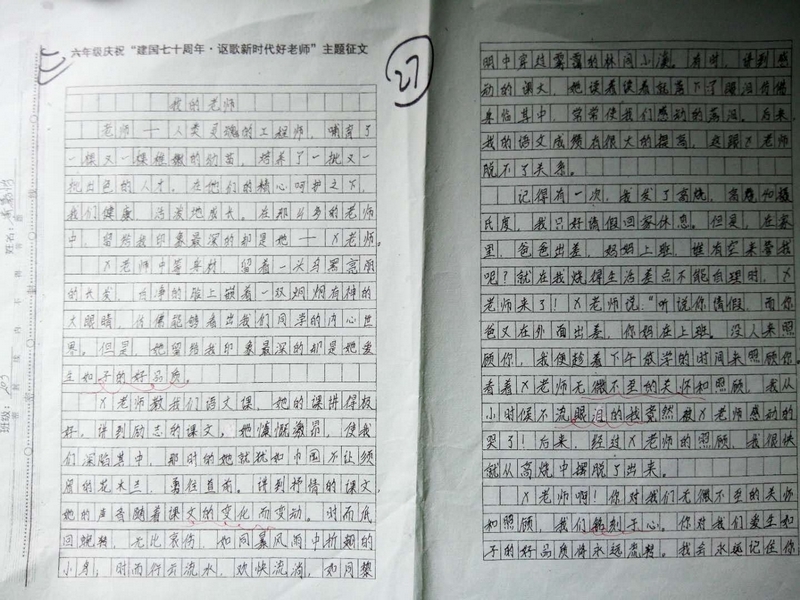 六年级庆祝“建国七十周年·讴歌新时代好老师”主题征文
27
我的老师
老师——人类灵魂的工程师，哺育了
一棵又一棵稚嫩的幼苗，培养了一批又一
批出色的人才。在他们的精心呵护之下，
我们健康、活泼地成长。在那么多的老师
中，留给我印象最深的却是她——X老师。
X老师中等身材，留着一头乌黑亮丽
的长发，白净的脸上嵌着一双炯炯有神的
大眼睛，仿佛能够看出我们同学的内心世
界。但是，她留给我印象最深的却是她爱
生如子的好品质。
X老师教我们语文课，她的课讲得极
好，讲到励志的课文，她慷慨激昂，使我
们深陷其中，那时的她就犹如巾帼不让须
眉的花木兰，勇往直前。讲到抒情的课文，
她的声音随着课文的变化而变动。时而低
回婉转，无比哀伤，如同暴风雨中折翅的
小鸟，时而行云流水，欢快流淌，如同黎
明中穿过雾霭的林间小溪。有时，讲到感
动的课文，她读着读着就落下了眼泪
其中，常常使我们感动的落泪。后来，
我的语文成绩有很大的提高，这跟X老师
脱不了关系。
记得有一次，我发了高烧，高烧
氏度，我只好请假回家休息。但是，在家
里，爸爸出差，妈妈上班，谁有空来管我
呢？就在我烧得生活差点不能自理时，X
老师来了！X老师说：“听说你请假，而你
爸又在外面出差，你妈在上班。没人来照
顾你，我便趁着下午放学的时间来照顾你。
看着X老师无微不至的关怀和照顾，我从
小时候不流眼泪的我竟然被X老师感动的
哭了！后来，经过X老师的照顾，我很快
就从高烧中摆脱了出来。
X老师啊！你对我们无微不至的关怀
和照顾，我们铭刻于心。你对我们爱生如
子的好品质将永远流转。我会永远记住你
姓名：
班级：203